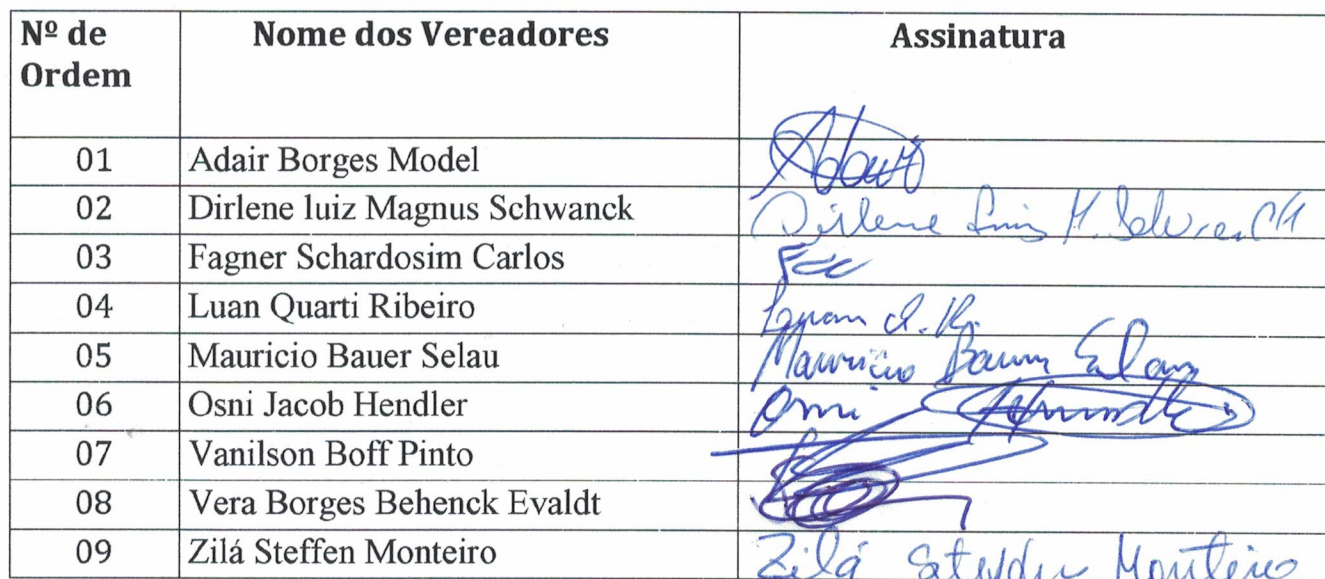 Nº de Ordem Nome dos Vereadores Assinatura
01 Adair Borges Model
02 Dirlene luiz Magnus Schwanck Dirlene Luiz M.
03 Fagner Schardosim Carlos
04 Luan Quarti Ribeiro Luan Q. Ri.
05 Mauricio Bauer Selau Mauricio Bauer Selau
06 Osni Jacob Hendler Osni
07 Vanilson Boff Pinto
08 Vera Borges Behenck Evaldt
09 Zilá Steffen Monteiro Zilá Monteiro